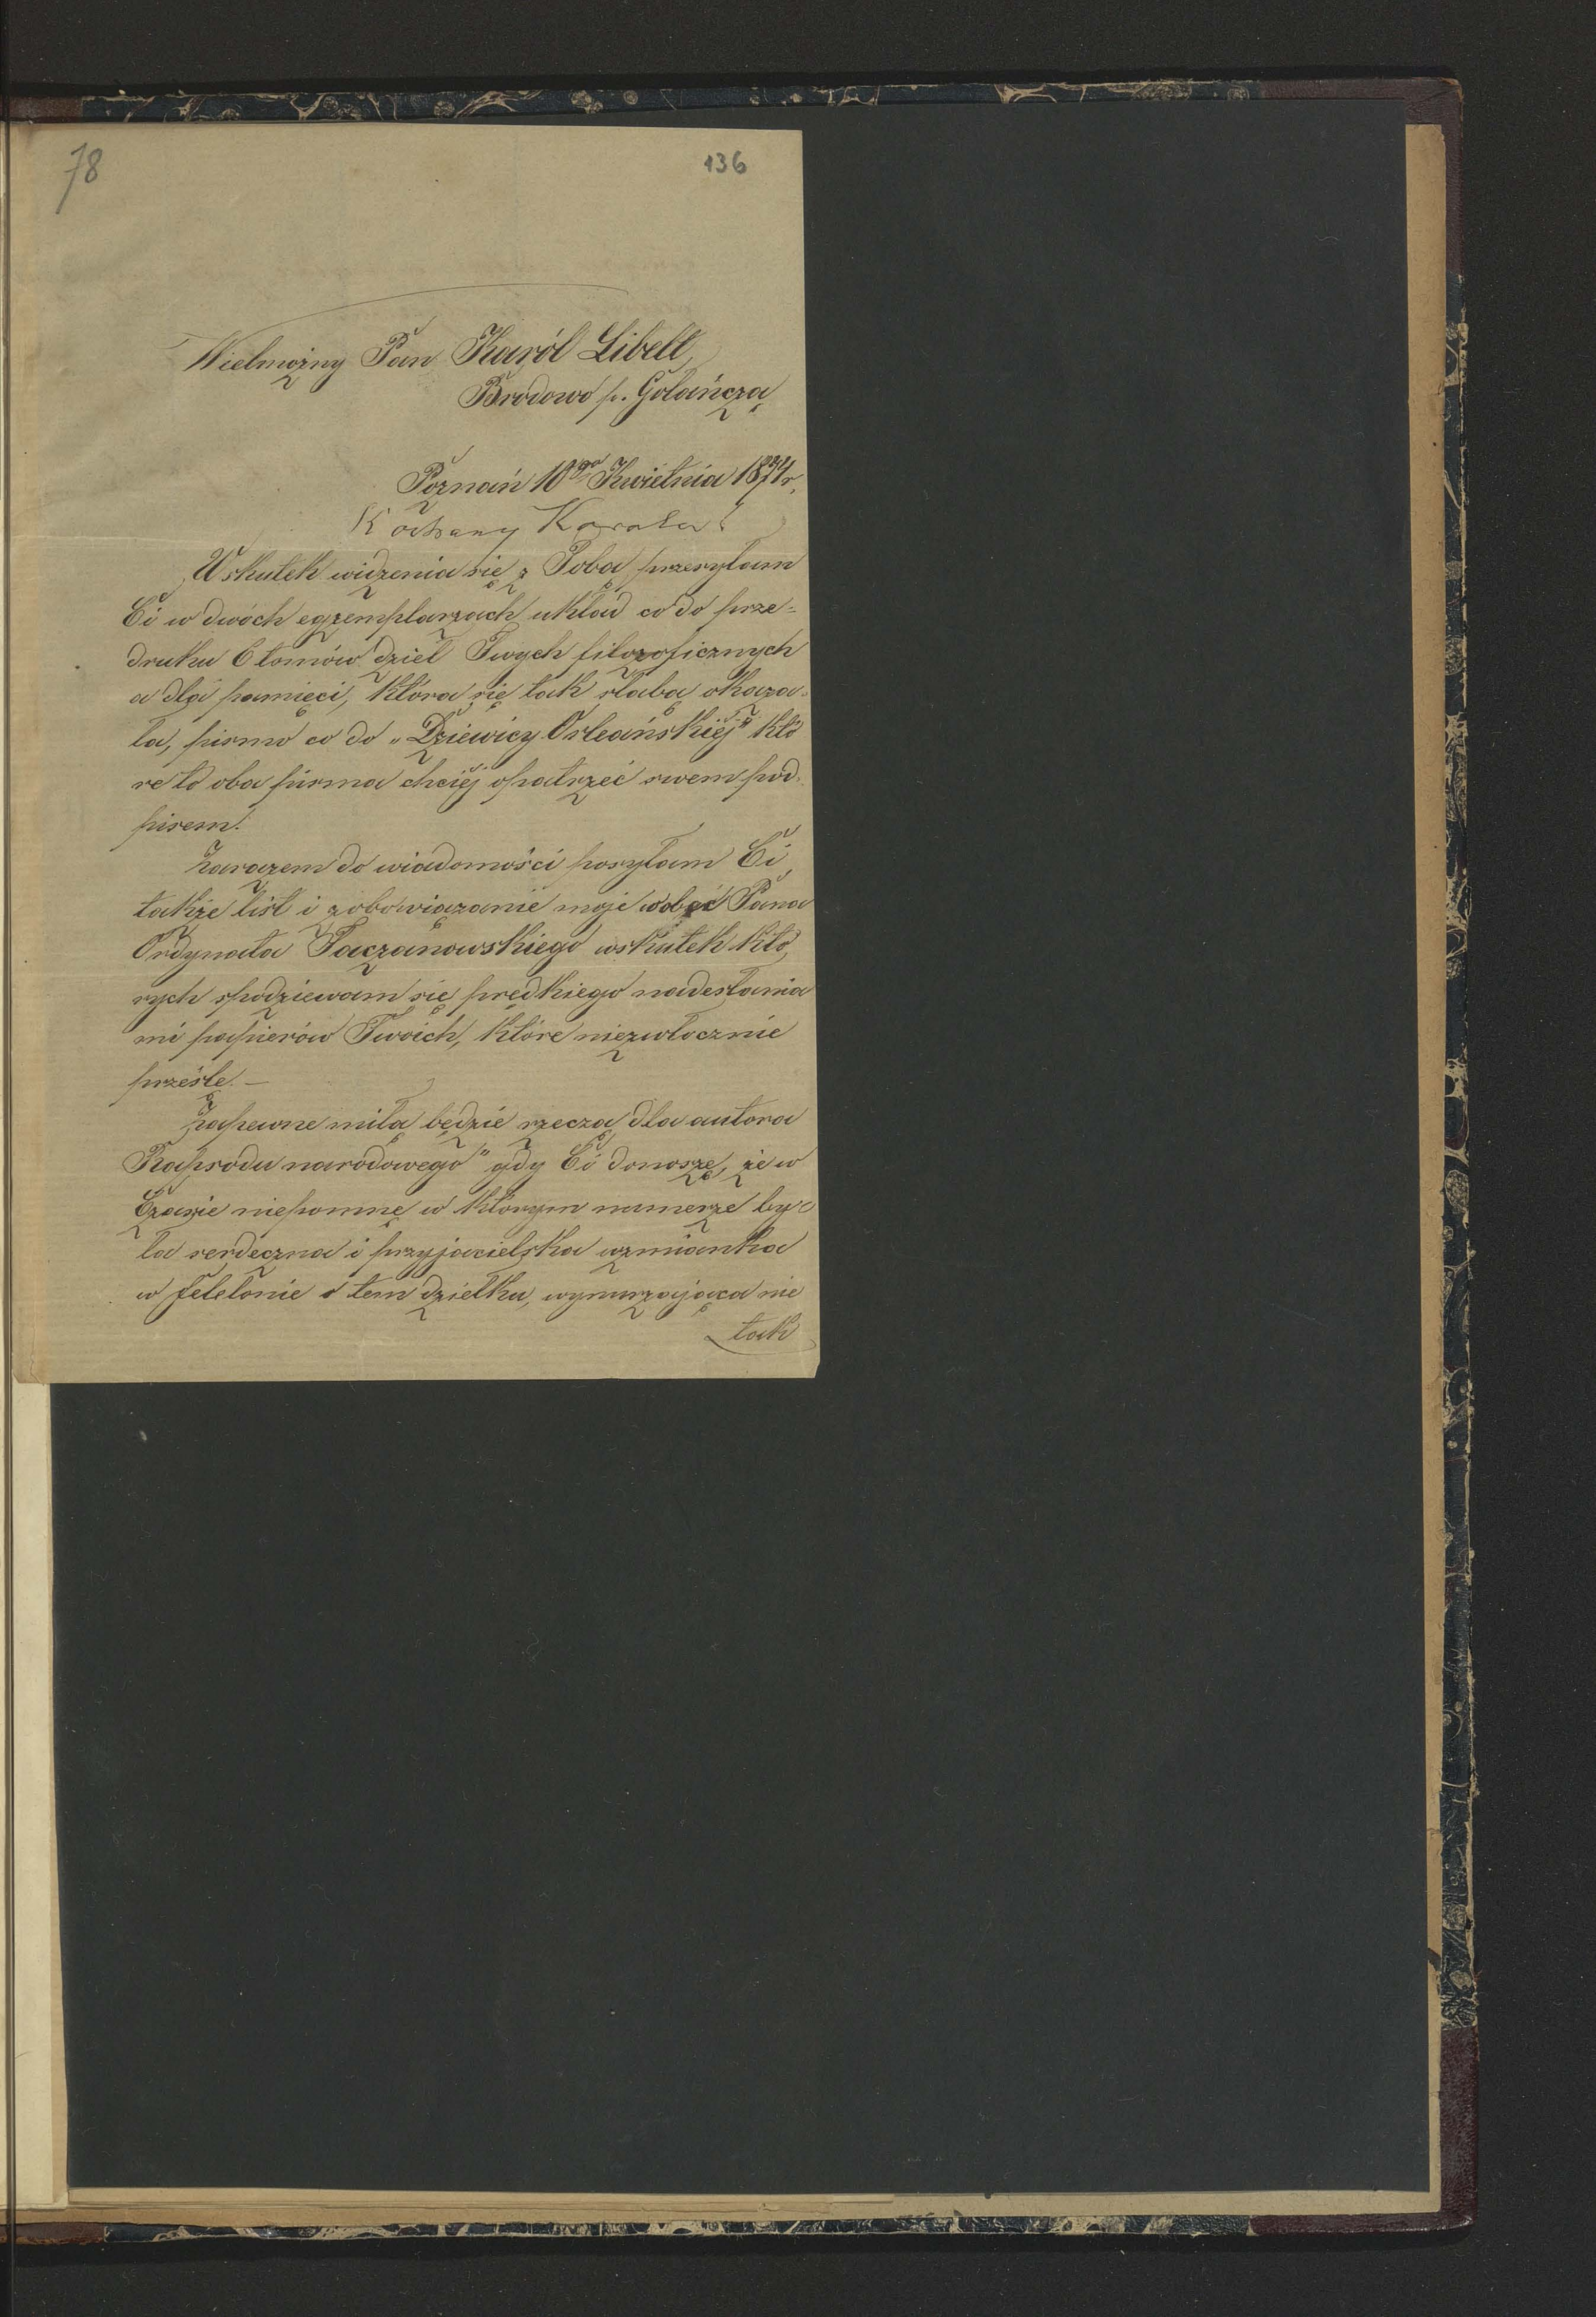 78
136
Wielmożny Pan Karól Libelt,
Brodowo p. Gołańczą
Poznań 10go Kwietnia 1874 r.
Kochany Karolu!
Wskutek widzenia się z Tobą przesyłam
Ci w dwóch egzemplarzach układ co do prze=
druku 6 tomów dzieł Twych filozoficznych
a dla pamięci, która się tak słabą okaza=
ła, pismo co do „Dziewicy Orleańskiéj" któ
re to oba pisma chciéj opatrzeć swem pod=
pisem.
Zarazem do wiadomości posyłam Ci
także list i zobowiązanie moje wobec Pana
Ordynata Taczanowskiego wskutek któ,
rych spodziewam się prędkiego nadesłania
mi papierów Twoich, które niezwłocznie
prześlę. —
Zapewne miłą będzie rzeczą dla autora
Rapsodu narodowego" gdy Ci donoszę, że w
Czasie niepomnę w którym numerze by=
ła serdeczna i przyjacielska wzmianka
w feletonie o tem dziełku, wynurzająca nie
tak